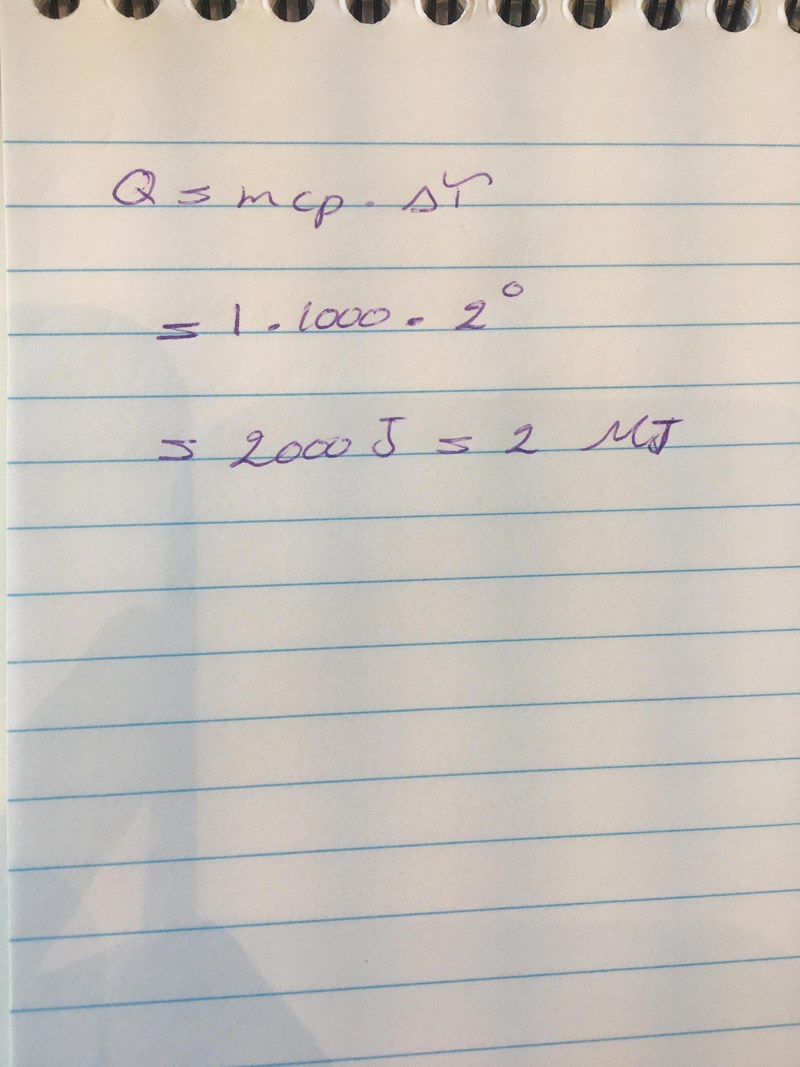 Q = mcp . ΔT
= 1 . 1000 . 2°
= 2000 J = 2 MJ